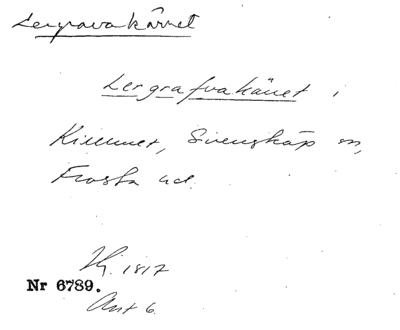 Lergravakärret
Lergrafvakäret i
Killhult, Svensköp sn,
Frosta hd.
Hy. 1817
Nr 6789.
Akt 6.